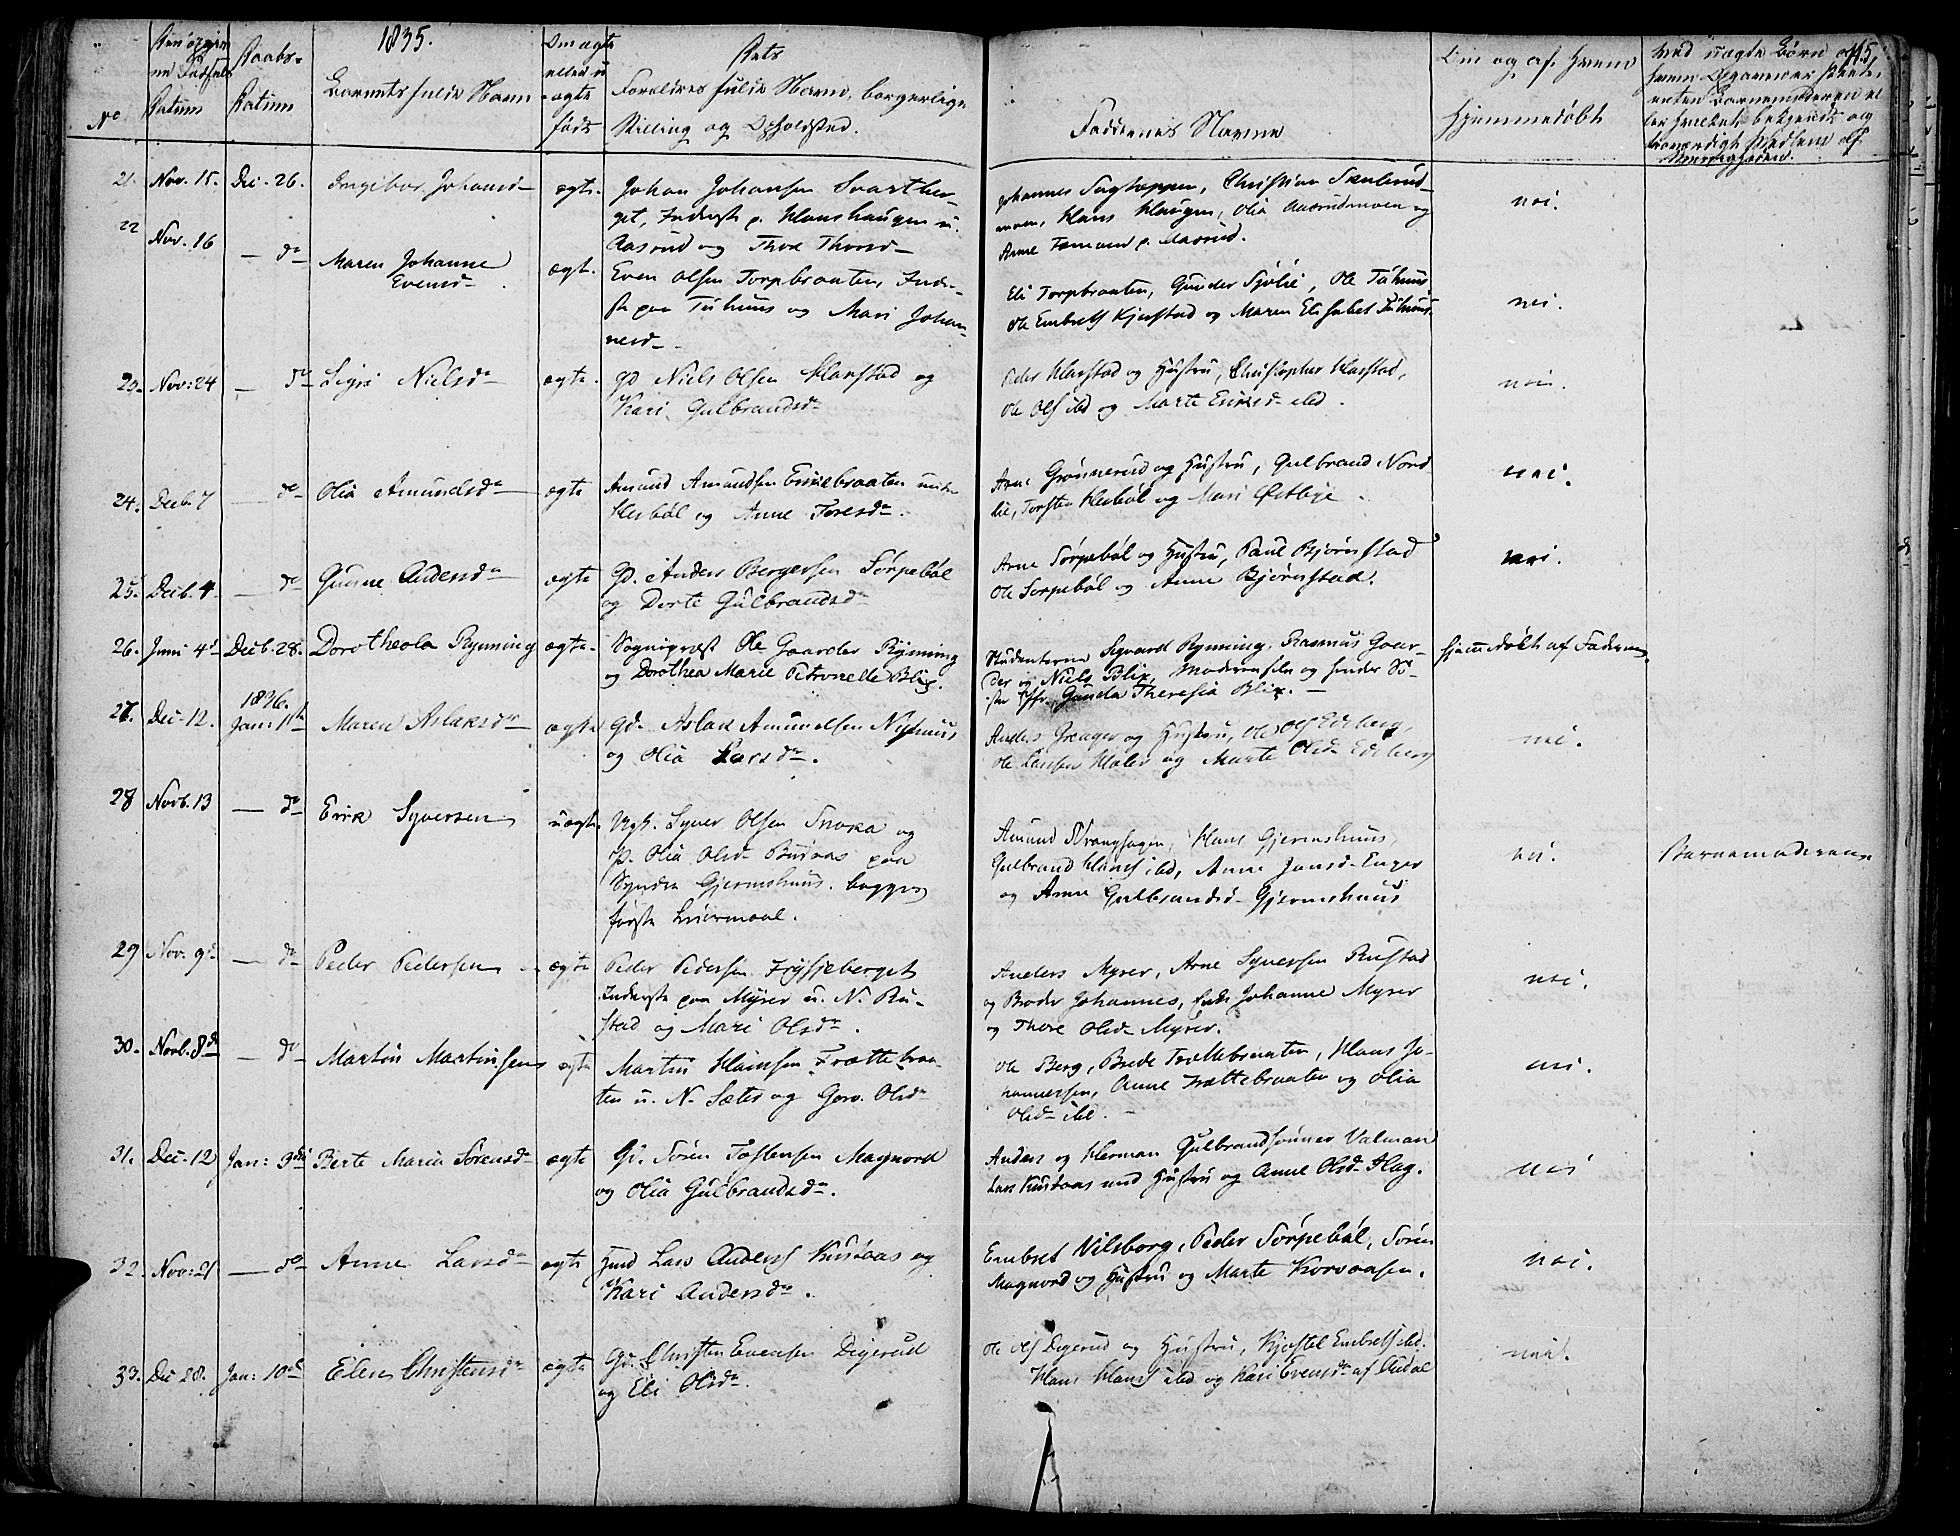 1835.
No
Datum
Daabs-
Datum
Barnets fulde Navn
Om ægte
eller u
ægte
født
Dets
Forældres fulde Navne, borgerlige
Stilling og Opholdsted.
Faddernes Navne
Om og af hvem
Hjemmedøbt
21. Nov. 15. Dec. 26. Ingebor Johansd ægte. Johan Johansen Svartber-
get, Inderst p. Hanshaugen u.
Aasrud og Thore Thorsd
Johannes Sagtoppen, Christian
moen, Hans Haugen, Olia Aasrudmoen og
Anne Tomoen p. Aasrud.
nei.
22 Nov. 16 — do Maren Johanne
Evensd ægt. Even Olsen Torpbraaten, Inder-
st paa Tuhuus og Mari Johan-
nesd
Eli Torpbraaten, Gunder Sjølie, Ole Tuhuus
Ole Embretss Kjerstad og Maren Elisabet Tuhuus
nei.
23. Nov: 24 — do Sigri Nielsdr ægte. Gd Niels Olsen Harstad og
Kari Gulbrandsdr
Peder Harstad og Hustru, Christopher Harstad,
Ole Olss ibd og Marte Eriksd ibd.
nei.
24. Decb. 7 — do Olia Amundsdr ægte Amund Amundsen Eriksbraaten under
Herbøl og Anne Toresdr.
Arne Grønnerud og Hustru, Gulbrand Nord
lie, Torsten Herbøl og Mari Østbye.
nei.
25. Decb. 4. — do Gunne Andersdr ægte Gd. Anders Bergersen Sørpebøl
og Dorte Gulbrandsdr
Arne Sørpebøl og Hustru, Paul Bjørnstad
Ole Sørpebøl og Anne Bjørnstad.
nei.
26. Juni 4de Decb. 28. Dorotheola Rynning ægte. Sognepræst Ole Gaarder Rynning
og Dorothea Marie Petronelle Blix.
Studenterne Sigvard Rynning, Rasmus Gaar-
der og Niels Blix, Moderen selv og hendes Sø-
ster Jfr. Gunda Theresia Blix. —
Hjemmedøbt af Faderen
1836.
27. Dec. 12. Jan: 1ste Maren Aslaksdr ægte Gd. Aslak Amundsen Nyhuus
og Olia Larsdr.
Anders Greager og Hustru, Ole Olss Edeberg,
Ole Larsen Holer og Marte Olsd Edeberg
nei.
28 Novb. 13 — do Erik Syversen uægte. Ugk. Syver Olsen Snoka og
Pp. Olia Olsd Budaas paa
Søndre Gjermshuus. begges
første Leiermaal.
Amund Strænghagen, Hans Gjermshuus,
Gulbrand Hanss ibd, Anne Jansd Enger
og Anne Gulbrandsd Gjermshuus
nei.
Barnemoderen
29 Nov. 9d — do Peder Pedersen ægte Peder Pedersen Frysjeberget
Inderst paa Myrer u. N. Ru-
stad og Mari Olsdr.
Anders Myrer, Arne Syversen Rustad
og Broder Johannes, Enke Johanne Myrer
og Thore Olsd Myrer.
nei.
30. Novb. 8d — do Martin Martinsen ægte Martin Hansen Trættebraa-
ten u. N. Sæter og Gorv. Olsd
Ole Berg, Brede Trættebraaten, Hans Jo-
hannessen, Anne Trættebraaten og Olia
Olsd ibd. —
nei.
31. Dec. 12 Jan: 3die Berte Maria Sørensd ægte Gd. Søren Tostensen Magnord
og Olia Gulbrandsdr.
Anders og Herman Gulbrandsønner Valman
Lars Kustaas med Hustru og Anne Olsd Hag.
nei
32. Nov: 21 — do Anne Larsd ægte Hmd Lars Anderss Kustaas og
Kari Andersdr.
Embret Vilsborg, Peder Sørpebøl, Søren
Magnord og Hustru og Marte Korvaasen.
nei.
33. Dec 28. Jan: 10de Elen Christensdr ægte Gd. Christen Evensen Digerud
og Eli Olsdr.
Ole Olss Digerud og Hustru, Kjostel Embretss ibd.
Hans Hanss ibd og Kari Evensdr af Audal
nei.